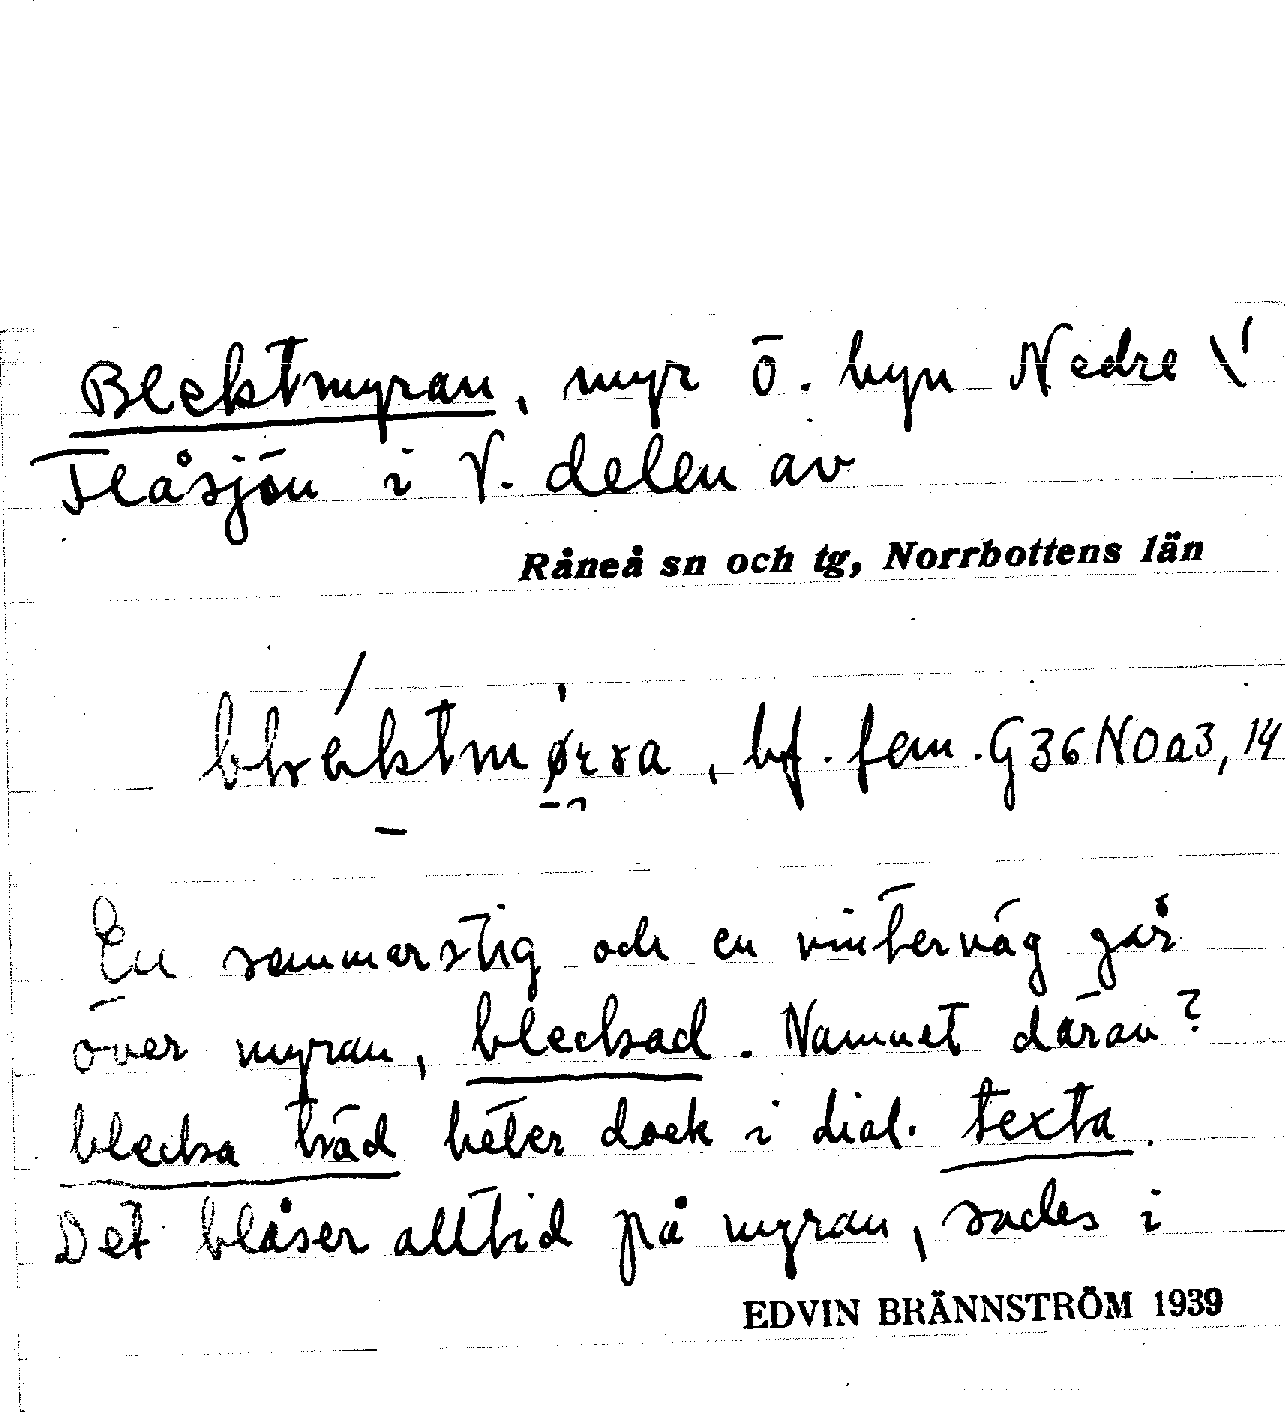 Blektmyran, myr ö. byn Nedre
Flåsjön i V. delen av
Råneå sn och tg, Norrbottens län
bf. fem. G36NOa3, 14
En sommarstig och en vinterväg går
över myran, bleckad. Namnet därav?
blecka träd heter dock i dial. texta.
Det blåser alltid på myran, sades i
EDVIN BRÄNNSTRÖM 1939